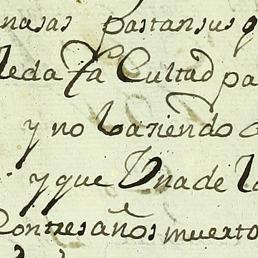 nasas pastansus q
leda fa Cultad pa
y no laziendo
y que Vna de la
Con tres años muerto